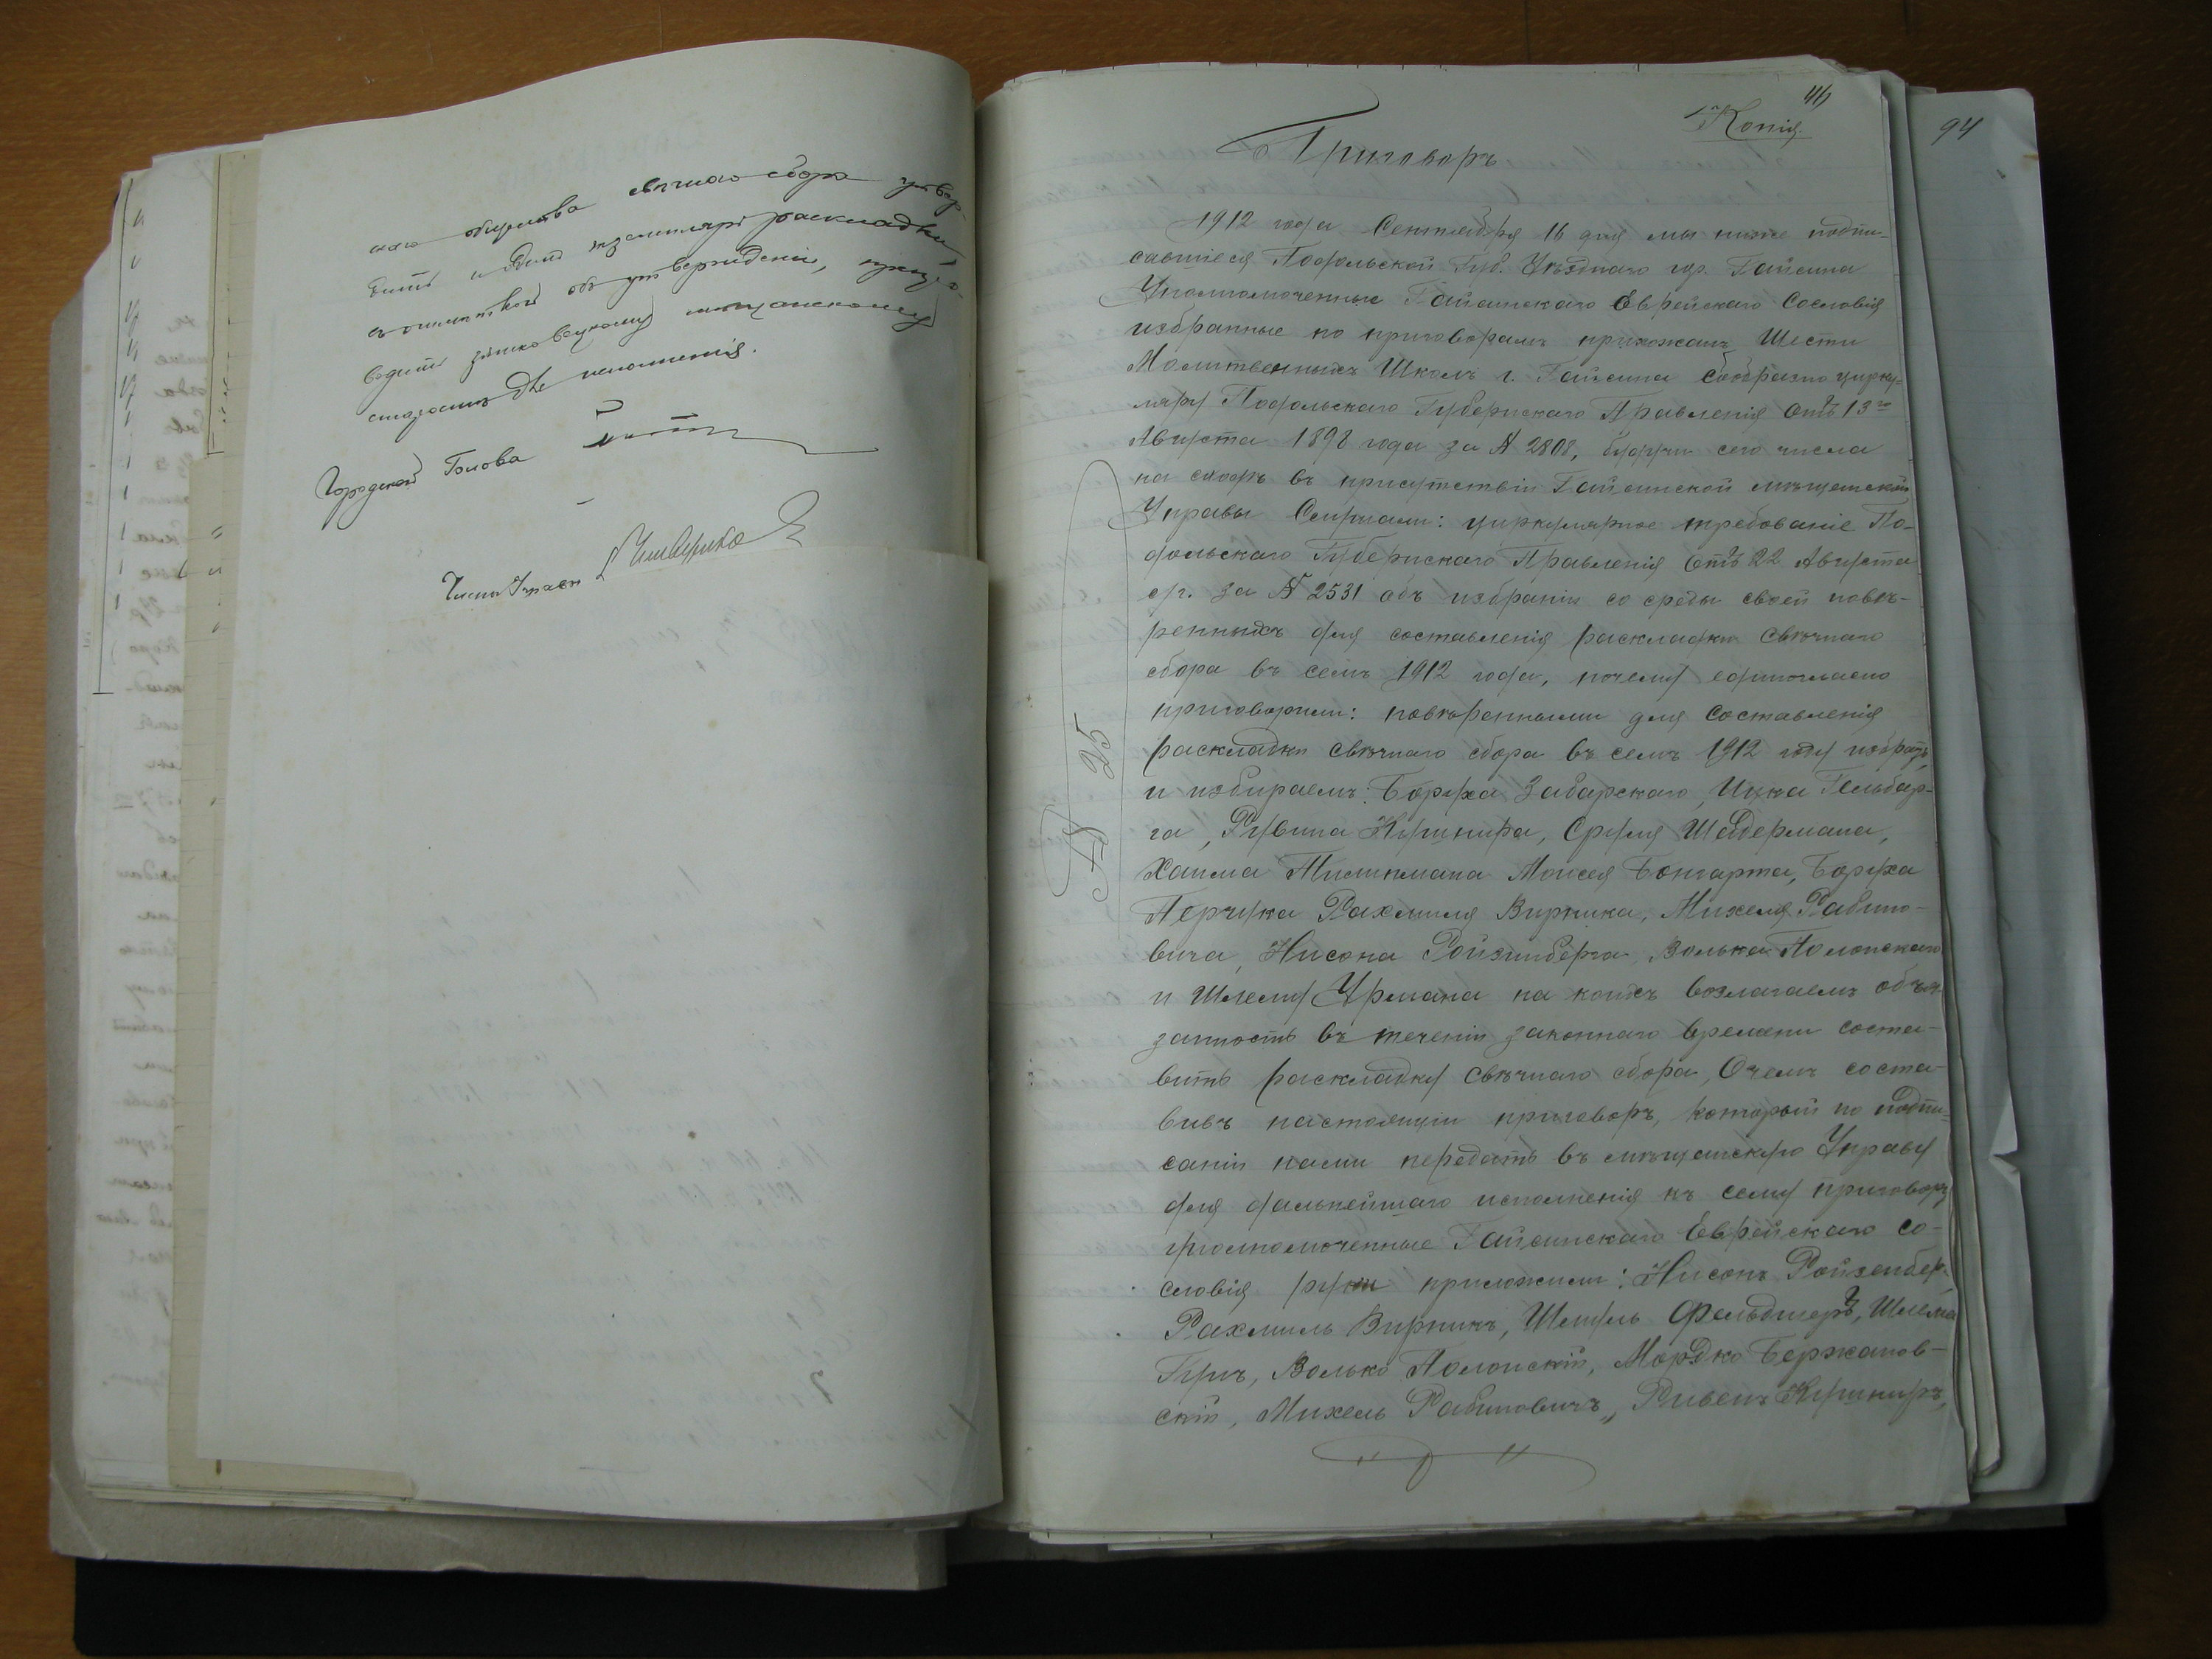 наго общества свѣчнаго сбора утвер-
дить и одинъ экземпляръ раскладки
съ отмѣткой объ утвержденіи, препро-
водить мѣщанскому
старостѣ для исполненія.
Городской Голова
Члены Управы
46
Копія.
94
Приговоръ
1912 года Сентября 16 дня мы ниже подпи-
савшіеся Подольской Губ. Уѣзднаго гор. Гайсина
Уполномоченные Гайсинскаго Еврейскаго Сословія
избранные по приговорамъ прихожанъ Шести
Молитвенныхъ Школъ г. Гайсина Сообразно цирку-
ляру Подольскаго Губернскаго Правленія отъ 13го
Августа 1898 года за № 2808, будучи сего числа
на сходѣ въ присутствіи Гайсинской мѣщанской
Управы Слушали: циркулярное требованіе По-
дольскаго Губернскаго Правленія отъ 22 Августа
с/г. за № 2531 объ избраніи со среды своей повѣ-
ренныхъ для составленія раскладки свѣчнаго
сбора въ семъ 1912 года, почему единогласно
приговорили: повѣренными для составленія
раскладки свѣчнаго сбора въ семъ 1912 году избрать
и избираемъ: Боруха Забарскаго, Ицка Гельбар-
га, Рувина Кушнира, Сруля Шейдермана,
Хаима Тилинмана Моисея Бонгарта, Боруха
Перчука Рахмиля Вирника, Михеля Рабино-
вича, Нисона Ройзинберга, Волька Полонскаго
и Шлему Урмана на коихъ возлагаемъ обя-
занность въ теченіи законнаго времени соста-
вить раскладку свѣчнаго сбора, Очемъ соста-
вивъ настоящій приговоръ, который по подпи-
саніи нами передать въ мѣщанскую Управу
для дальнейшаго исполненія къ сему приговору
уполномоченные Гайсинскаго Еврейскаго со-
словія руки приложили: Нисонъ Ройзенбер,
Рахмиль Вирникъ, Шмуль Фельдшеръ, Шлема
Гучъ, Волько Полонскій, Мордко Бержанов-
скій, Михель Рабиновичъ, Рувенъ Кушниръ,
№ 25